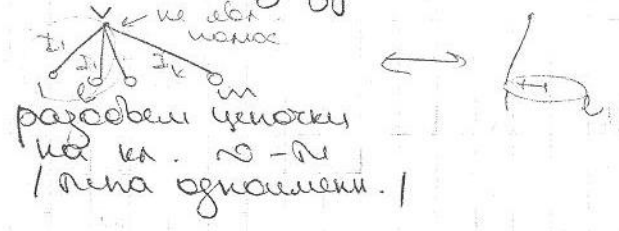 V
не явл.
полюс
I₁ I₁ I_k
1 l m
разобьем цепочки
на кл. ~ - ти
/ типа одноименн. /